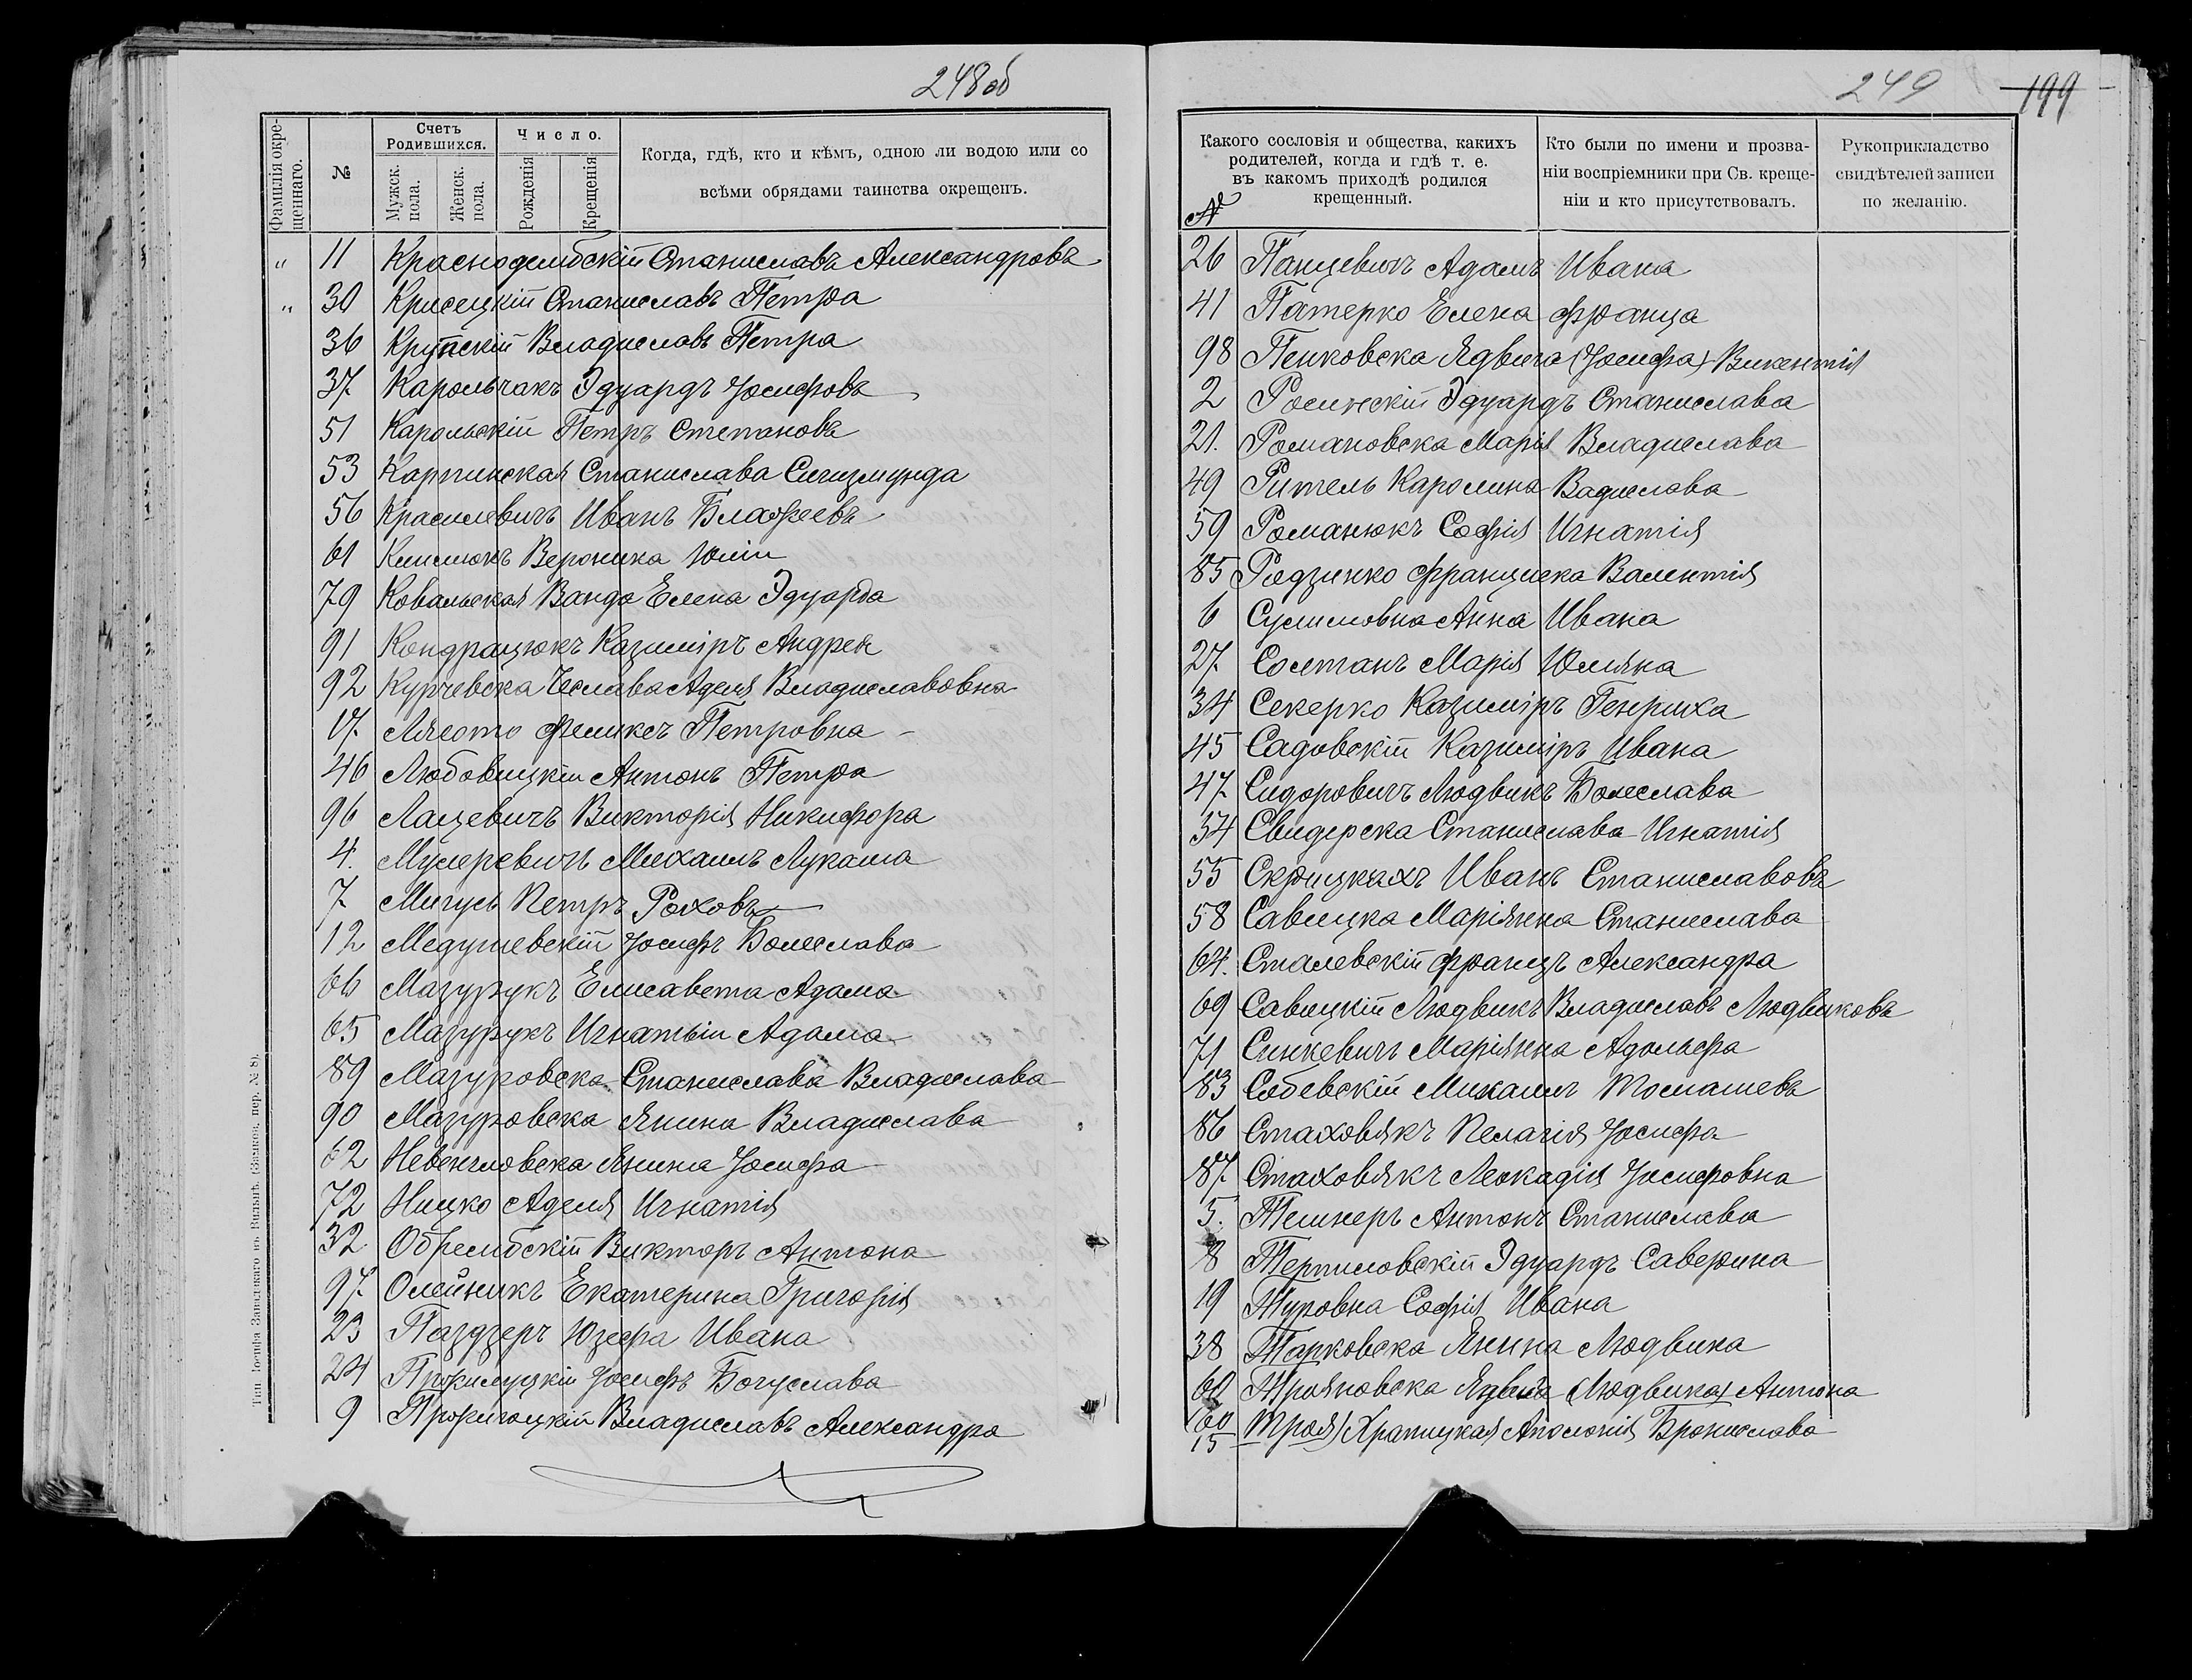 248 об
Фамилія окрещеннаго.
№
Счетъ Родившихся.
Мужск. пола.
Женск. пола.
Число.
Рожденія
Крещенія
Когда, гдѣ, кто и кѣмъ, одною ли водою или со
всѣми обрядами таинства окрещенъ.
" 11 Красnодембскій Станиславъ Александровъ
" 30 Крисецкій Станиславъ Петра
36 Крупскій Владиславъ Петра
37 Карольчакъ Эдуардъ Іосифовъ
51 Карольскій Петръ Степановъ
53 Карпинская Станислава Сигизмунда
56 Красилевичъ Иванъ Блажеевъ
61 Климюкъ Вероника Юліи
79 Ковальская Ванда Елена Эдуарда
91 Кондрацюкъ Казиміръ Андрея
92 Курчевска Чеслава Аделя Владиславовна
17. Лясото Феликсъ Петровна
46 Любовицкіи Антонъ Петра
96 Лацевичъ Викторія Никифора
4. Мулеревичъ Михаилъ Лукаша
7 Мигусь Петръ Роховъ
12 Медушевскій Іосифъ Болеслава
66 Мазурукъ Елисавета Адама
65 Мазурукъ Игнатыи Адама
89 Мазуровска Станислава Владислава
90 Мазуровска Янина Владислава
62 Невенгловска Янина Іосифа
72 Ницко Аделя Игнатія
32 Обрембскій Викторъ Антона
97. Олейникъ Екатерина Григорія
23 Паздзеръ Юзефа Ивана
24 Іосифъ Богуслава
9 Владиславъ Александра
Тип. Іосифа Завадзкаго въ Вильнѣ. (Замков. пер. № 8).
249 199
Какого сословія и общества, какихъ
родителей, когда и гдѣ т. е.
въ какомъ приходѣ родился
крещенный.
№
Кто были по имени и прозва-
ніи воспріемники при Св. креще-
ніи и кто присутствовалъ.
Рукоприкладство
свидѣтелей записи
по желанію.
26 Панцевичъ Адамъ Ивана
41 Патерко Елена Франца
98 Пенковска Ядвига (Іосифа) Викентія
2 Росинскій Эдуардъ Станислава
21. Романовска Марія Владислава
49 Ритель Каролина Вадислава
59 Романюкъ Софія Игнатія
85 Радзинко Франциска Валентія
6 Сулимовна Анна Ивана
27. Солтанъ Марія Юляна
34 Секерко Казиміръ Генриха
45 Садовскій Казиміръ Ивана
47 Сидоровичъ Людвикъ Болеслава
54 Свидерска Станислава Игнатія
55 Иванъ Станиславовъ
58 Савицка Маріянна Станислава
64. Сталевскій Францъ Александра
69 Савицкій Людвикъ Владиславъ Людвиковъ
71 Синкевичъ Маріянна Адольфа
83 Собевскій Михаилъ Томашевъ
86 Стаховякъ Пелагія Іосифа
87. Стаховякъ Леокадія Іосифовна
5. Тешнеръ Антонъ Станислава
8 Терпиловскій Эдуардъ Саверина
19 Туровна Софія Ивана
38 Тарковска Янина Людвика
60 Трояновска Ядвига (Людвика) Антона
60
15 (Троя) Храпицкая Аполонія Бронислава